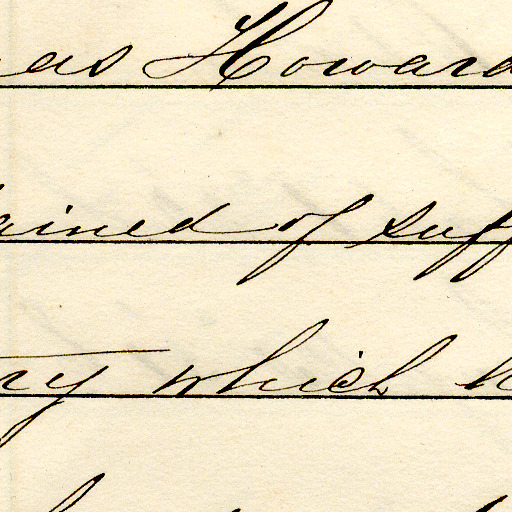 as Howard
ained of suff
ry which h